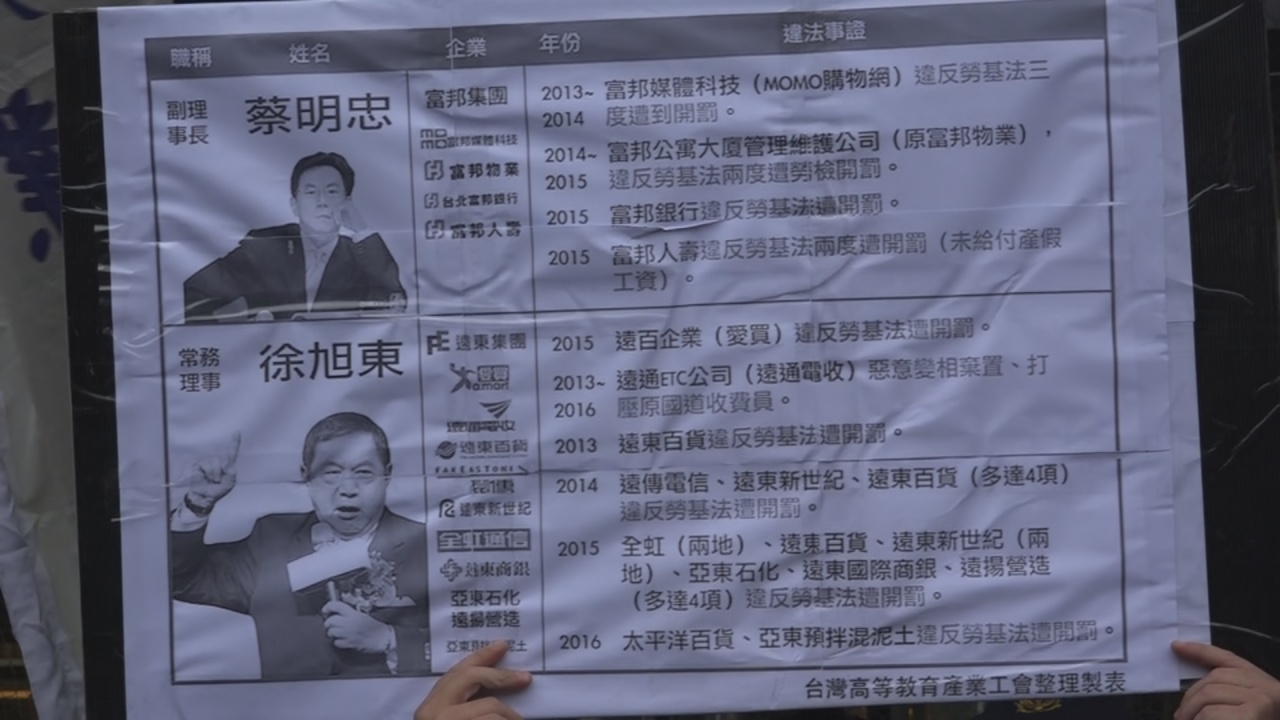 職稱 姓名 企業 年份 違法事證
副理
事長
蔡明忠
富邦集團
momo富邦媒體科技
富邦物業
台北富邦銀行
富邦人壽
2013~ 富邦媒體科技（MOMO購物網）違反勞基法三
2014 度遭到開罰。
2014~ 富邦公寓大廈管理維護公司（原富邦物業），
2015 違反勞基法兩度遭勞檢開罰。
2015 富邦銀行違反勞基法遭開罰。
2015 富邦人壽違反勞基法兩度遭開罰（未給付產假
工資）。
常務
理事
徐旭東
遠東集團
愛買
a.mart
遠通電收
遠東百貨
FAREASTONE
遠傳
遠東新世紀
全虹通信
遠東商銀
亞東石化
遠揚營造
亞東預拌混泥土
2015 遠百企業（愛買）違反勞基法遭開罰。
2013~ 遠通ETC公司（遠通電收）惡意變相棄置、打
2016 壓原國道收費員。
2013 遠東百貨違反勞基法遭開罰。
2014 遠傳電信、遠東新世紀、遠東百貨（多達4項）
違反勞基法遭開罰。
2015 全虹（兩地）、遠東百貨、遠東新世紀（兩
地）、亞東石化、遠東國際商銀、遠揚營造
（多達4項）違反勞基法遭開罰。
2016 太平洋百貨、亞東預拌混泥土違反勞基法遭開罰。
台灣高等教育產業工會整理製表